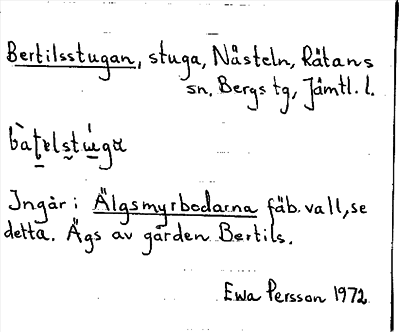 Bertilsstugan, stuga, Nåsteln, Rätans
sn, Bergs tg, Jämtl. l.
Ingår i Älgsmyrbodarna fäb. vall, se
detta. Ägs av gården Bertils.
Ewa Persson 1972